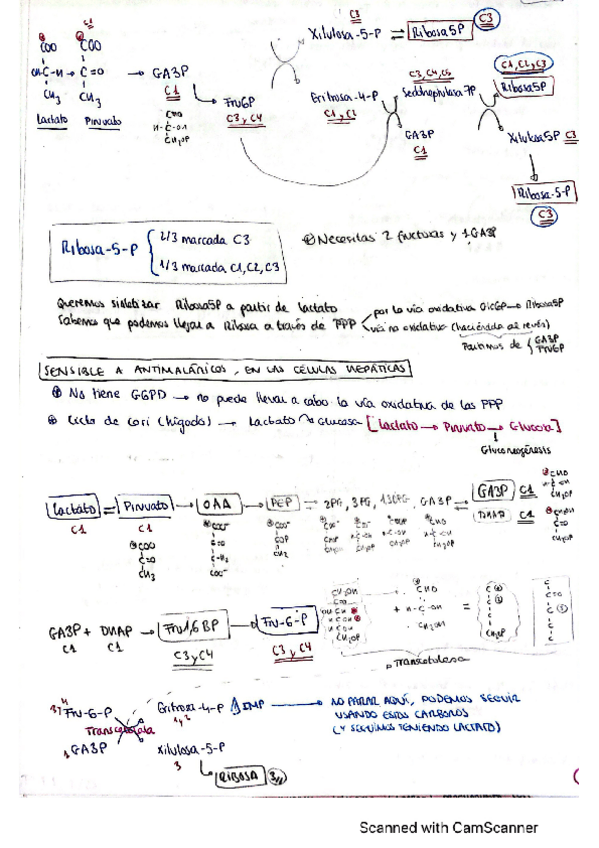 C3
Xilulosa-5-P ⇌ Ribosa5P C3
C1
COO COO
OH-C-H → C=O → GA3P
CH3 CH3 C1
Lactato Piruvato
Fru6P
C3 y C4
CHO
H-C-OH
CH2OP
Eritrosa-4-P
C1, C2
C3, C4, C5
Sedoheptulosa7P
GA3P
C1
C1, C2, C3
Ribosa5P
Xilulosa5P C3
Ribosa-5-P
C3
Ribosa-5-P
2/3 marcada C3
1/3 marcada C1, C2, C3
Necesitas 2 fructosas y 1 GA3P
Queremos sintetizar Ribosa5P a partir de lactato
Sabemos que podemos llegar a Ribosa a través de PPP
por la vía oxidativa Glc6P → Ribosa5P
vía no oxidativa (haciéndola al revés)
Partimos de GA3P
Fru6P
SENSIBLE A ANTIMALÁRICOS, EN LAS CÉLULAS HEPÁTICAS
No tiene G6PD → no puede llevar a cabo la vía oxidativa de las PPP
Ciclo de Cori (hígado) → Lactato → Glucosa [Lactato → Piruvato → Glucosa]
Gluconeogénesis
Lactato = Piruvato → OAA → PEP = 2PG, 3PG, 1,3BPG, GA3P ⇌ GA3P C1
DHAP C1
C1 C1
COO
C=O
CH3
COO-
C=O
C-H2
COO-
COO-
COP
CH2
CHO
H-C-OH
CH2OP
CH2OH
C=O
CH2OP
GA3P + DHAP → Fru1,6BP → Fru-6-P
C1 C1
C3 y C4
C3 y C4
CH2OH
C=O
CH2OP
+
CHO
H-C-OH
CH2OP
=
Transcetolasa
3,4 Fru-6-P
Eritrosa-4-P
1,2
Transcetolasa
1 GA3P
Xilulosa-5-P
3
RIBOSA 3
NO PARAR AQUÍ, PODEMOS SEGUIR
USANDO ESTOS CARBONOS
(Y SEGUIMOS TENIENDO LACTATO)
Scanned with CamScanner